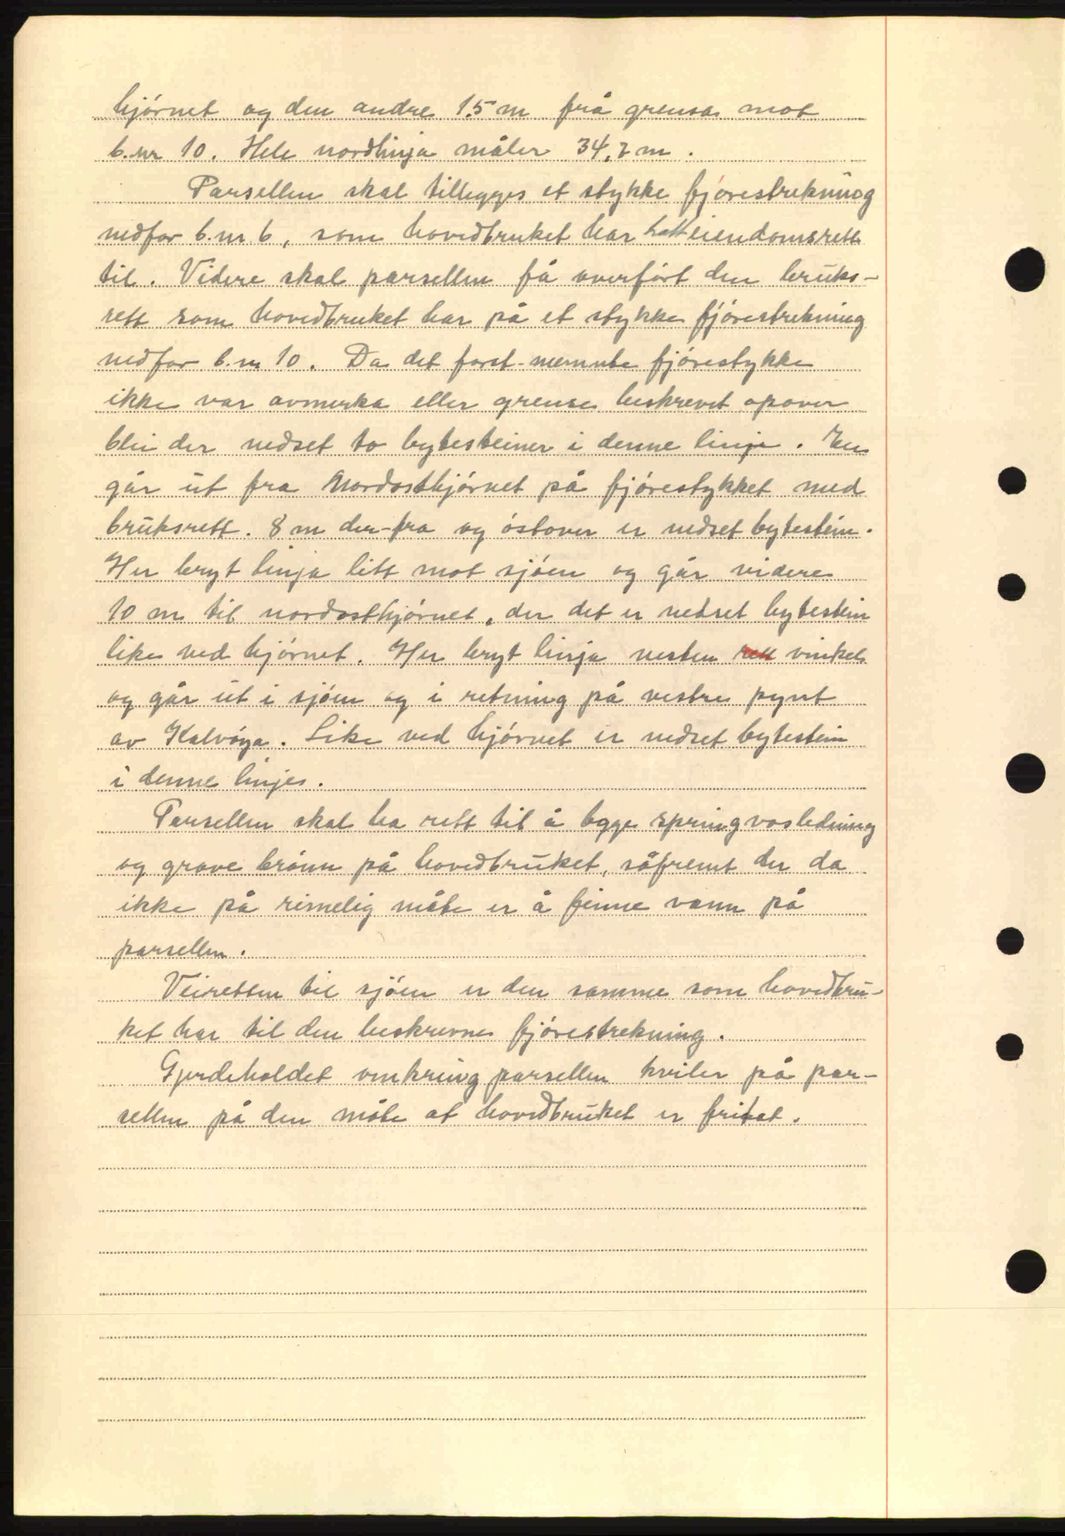 hjørnet og den andre 1.5 m frå grensa mot
b.nr 10. Hele nordlinja måler 34,7 m.
Parsellen skal tillegges et stykke fjørestrekning
nedfor b.nr 6, som hovedbruket har hatt eiendomsrett
til. Videre skal parsellen få overført den bruks-
rett som hovedbruket har på et stykke fjørestrekning
nedfor b.nr 10. Da det først-nemnte fjørestykke
ikke var avmerka eller grense beskrevet opover
blei der nedset to bytesteiner i denne linje. En
går ut fra Nordosthjørnet på fjørestykket med
bruksrett. 8 m der-fra og østover er nedset bytestein.
Her bryt linja litt mot sjøen og går videre
10 m til nordosthjørnet, der det er nedset bytestein
like ved hjørnet. Her bryt linja nesten rett vinkel
og går ut i sjøen og i retning på vestre pynt
av Kalvøya. Like ved hjørnet er nedset bytestein
i denne linjes.
Parsellen skal ha rett til å bygge springvasledning
og grave brønn på hovedbruket, såfremt der da
ikke på rimelig måte er å finne vann på
parsellen.
Veiretten til sjøen er den samme som hovedbru-
ket har til den beskrevne fjørestrekning.
Gjerdeholdet omkring parsellen kviler på par-
sellen på den måte at hovedbruket er fritat.